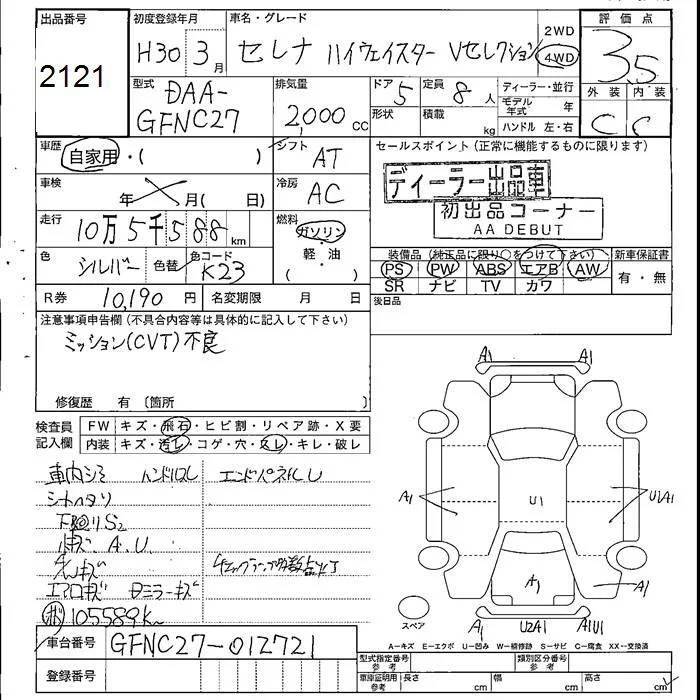 出品番号
2121
初度登録年月
H30 3月
車名・グレード
セレナ ハイウェイスター Vセレクション
2WD
4WD
評価点
3.5
外装 内装
C C
型式
DAA-
GFNC27
排気量
2,000 cc
ドア 5
形状
定員 8 人
積載 kg
ディーラー・並行
モデル年式 年
ハンドル 左・右
車歴
自家用・( )
シフト
AT
セールスポイント(正常に機能するものに限ります)
ディーラー出品車
初出品コーナー
AA DEBUT
車検
年 月( 日)
冷房
AC
走行
10万5千588 km
燃料
ガソリン
軽・油
( )
色
シルバー
色替
色コード
K23
装備品(純正品に限り○をつけて下さい)
PS PW ABS エアB AW
SR ナビ TV カワ
新車保証書
有・無
R券 10,190 円
名変期限 月 日
後日品
注意事項申告欄(不具合内容等は具体的に記入して下さい)
ミッション(CVT)不良
修復歴 有〔箇所 〕
検査員
記入欄
FW キズ・飛石・ヒビ割・リペア跡・X要
内装 キズ・汚レ・コゲ・穴・スレ・キレ・破レ
車内シミ ハンドルスレ エンドパネルU
シートヘタリ
下廻りS2
キズ、A.U.
エアロキズ Dミラーキズ
105589K
A1 A1
A1 U1 U1A1
A1 A1
A1 U2A1 A1U1
スペア
A-キズ E-エクボ U-凹み W-補修跡 S-サビ C-腐食 XX-交換済
車台番号 GFNC27-012721
登録番号
型式指定番号
参考
類別区分番号
参考
車庫証明用
参考
長さ cm 幅 cm 高さ cm